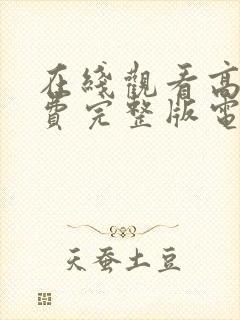 在綫觀看高
費完整版電
天蚕土豆